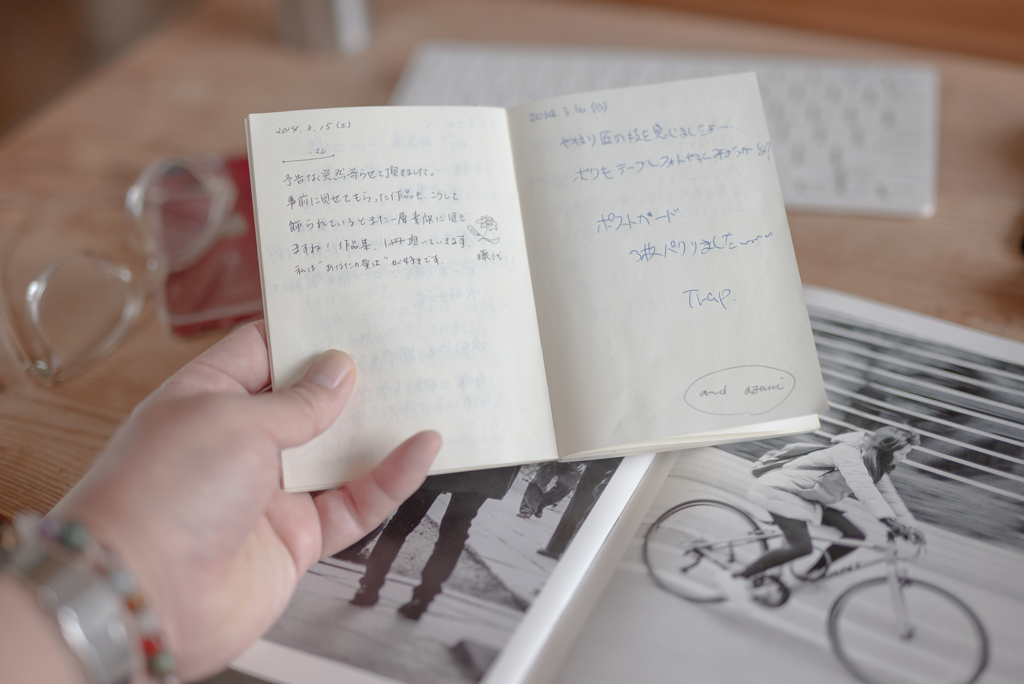 2014.3.15(土)
予告なく突然寄らせて頂きました。
事前に見せてもらった作品も、こうして
飾られているとまた一層素敵に見え
ますね！作品集、
私は"あなたの愛は"が好きです。
2014.3.16(日)
やはり匠の技を感じましたよ〜。
ポストカード
3枚パクリました〜〜〜
Trap.
and asami